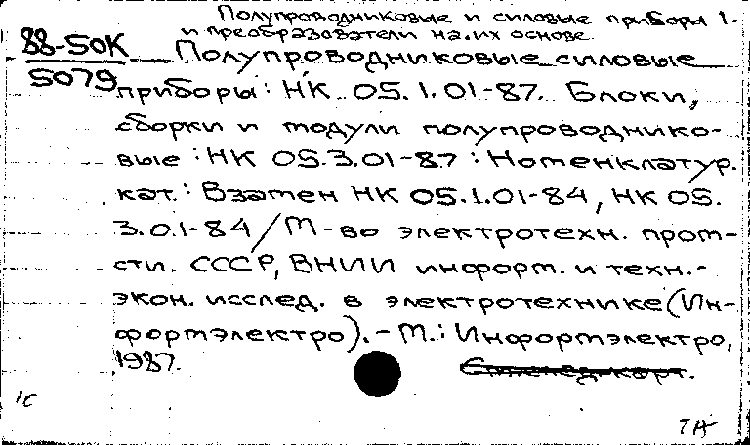 Полупроводниковые и силовые приборы 1
и преобразователи на их основе.
88-50К
5079
Полупроводниковые силовые
приборы : НК 05.1.01-87. Блоки,
сборки и модули полупроводнико-
вые : НК 05.3.01-87 : Номенклатур.
кат. : Взамен НК 05.1.01-84, НК 05.
3.01-84 / М-во электротехн. пром-
сти. СССР, ВНИИ информ. и техн.-
экон. исслед. в электротехнике (Ин-
формэлектро). - М. : Информэлектро,
1987.
1С